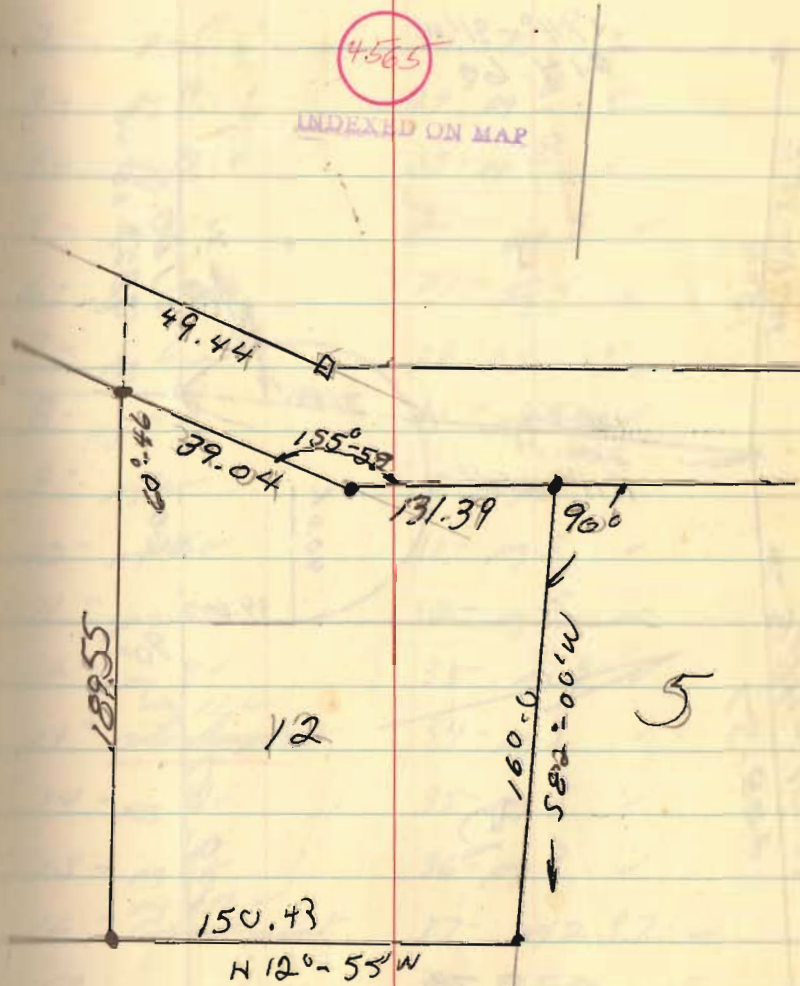 4565
INDEXED ON MAP
49.44
155°-59
39.04
60°-46
131.39
90°
189.55
12
160.0
S82°-00'W
5
150.43
N 12°-55'W